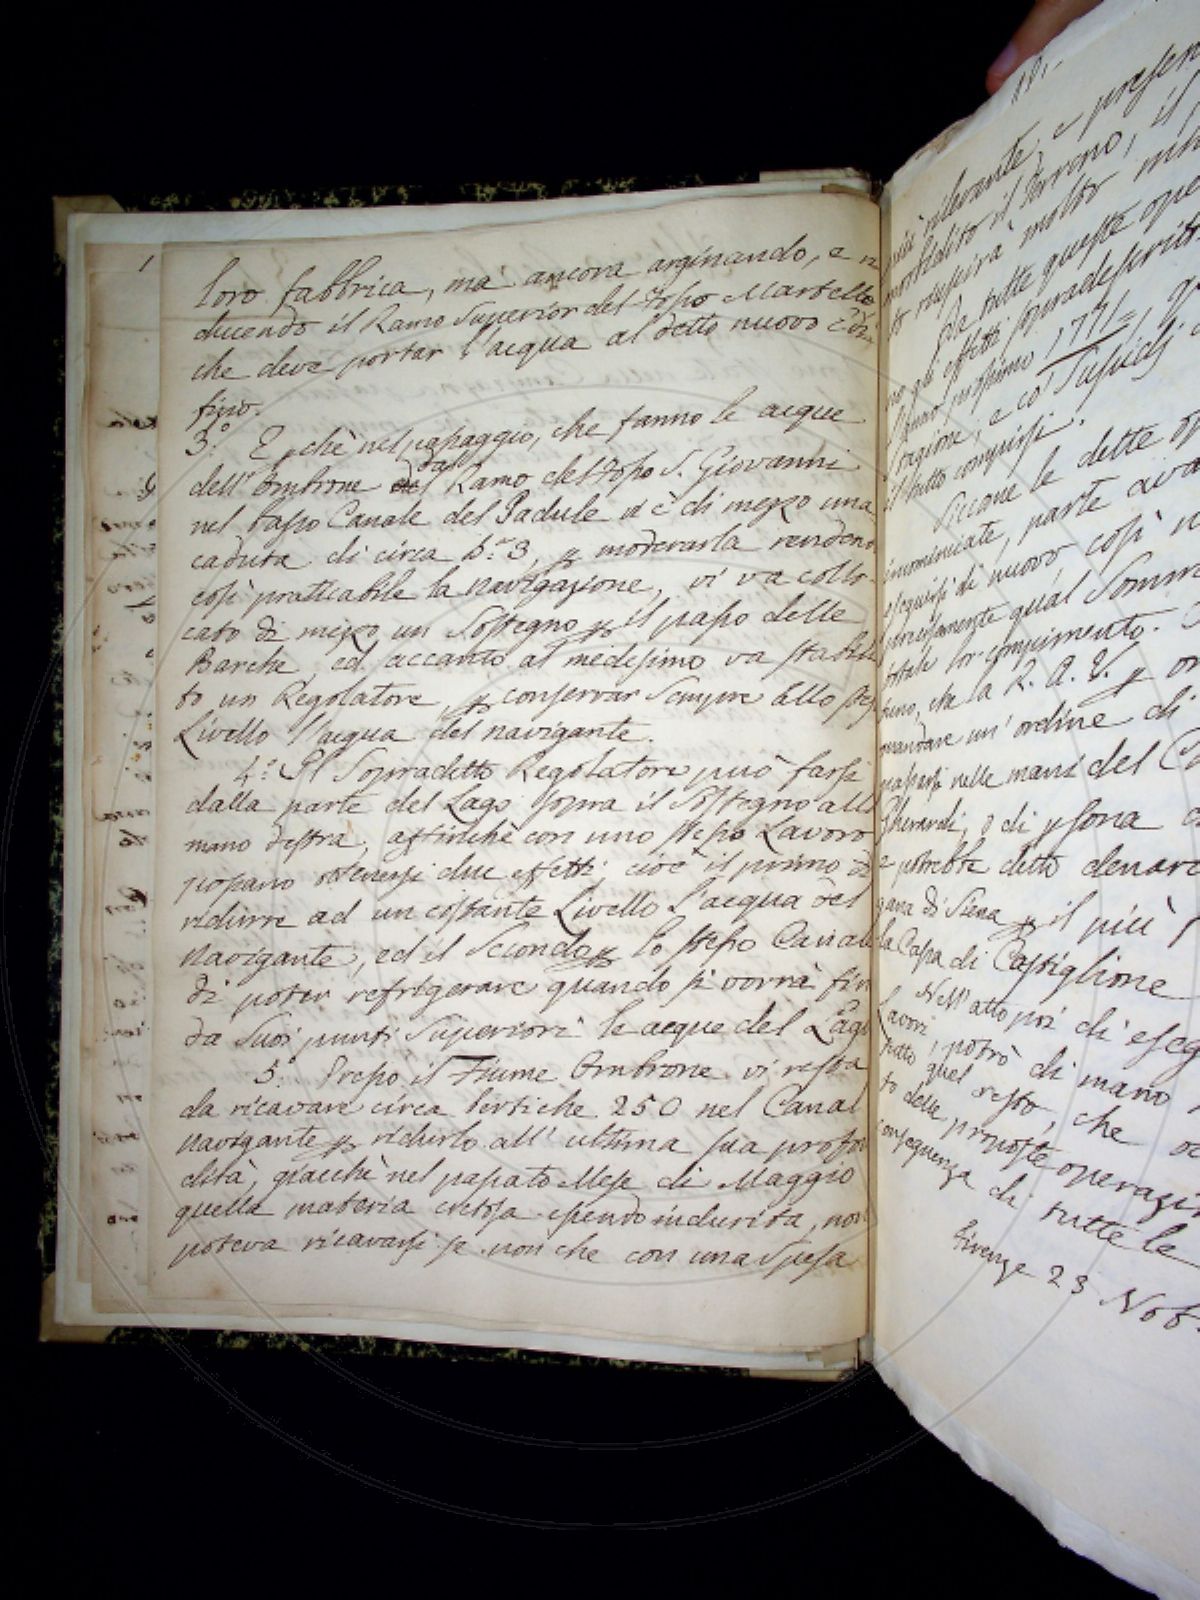 loro fabbrica, ma ancora arginando, e ri
ducendo il Ramo Superior del Fosso Martello
che deve portar l'acqua al detto nuovo
fizio.
3.° E pchè nel passaggio, che fanno le acque
dell' Ombrone dal Ramo del Fosso S. Giovanni
nel basso Canale del Padule vi è di mezzo una
caduta di circa b.a 3, p moderarla rendeno
così pratticabile la navigazione, vi va collo-
cato di mezzo un Sostegno p il passo delle
Barche, ed accanto al medesimo va stabili
to un Regolatore, p conservar sempre allo stes
Livello l'acqua del navigante.
4.° Il Sopradetto Regolatore può farsi
dalla parte del Lago sopra il Sostegno alla
mano destra, affinchè con uno stesso Lavoro
possano ottenersi due effetti, cioè il primo di
ridurre ad un costante Livello l'acqua del
Navigante, ed il Secondo p lo stesso Canale
di poter refrigerare quando si vorrà fin
da suoi punti Superiori le acque del Lago
5.° Presso il Fiume Ombrone vi resta
da ricavare circa Pertiche 250 nel Canal
navigante p ridurlo all' ultima sua profon
dità, giacchè nel passato Mese di Maggio
quella materia cretosa essendo indurita, non
poteva ricavarsi se non che con una Spesa
più rilevante, e presen
morbidito il Terreno, il
to riuscirà molto min
Da tutte queste ope
no gli effetti sopradescritti
prossimo 1771=, qu
stagione, e co' Sussidj
il tutto compirsi.
Siccome le dette op
incominciate, parte ava
eseguirsi di nuovo, così n
precisamente qual Somma
totale lor compimento.
che la R. A. V. p or
mandare un' ordine di
passarsi nelle mani del C
Gherardi, o di psona
e potrebbe detto denaro
gana di Siena p il più
la Cassa di Castiglione
Nell' atto poi di eseg
Lavori, potrò di mano
tutto quel resto, che oc
to delle proposte operazi
conseguenza di tutte le
Firenze 23 Nob